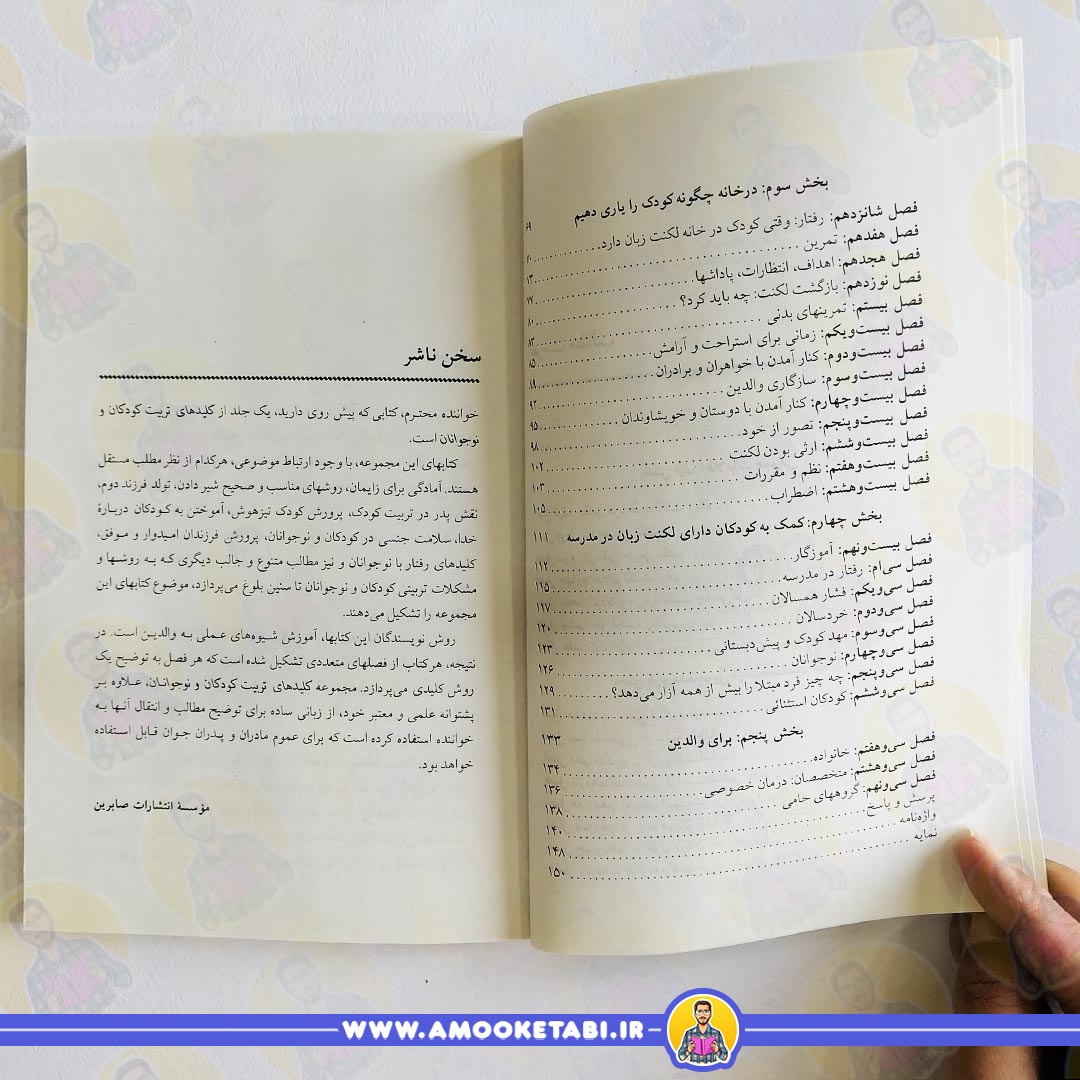 بخش سوم: درخانه چگونه کودک را یاری دهیم ۶۹
فصل شانزدهم: رفتار: وقتی کودک در خانه لکنت زبان دارد
فصل هفدهم: تمرین
فصل هجدهم: اهداف، انتظارات، پاداشها
فصل نوزدهم: بازگشت لکنت: چه باید کرد؟
فصل بیستم: تمرینهای بدنی ۸۰
فصل بیست‌ویکم: زمانی برای استراحت و آرامش ۸۳
فصل بیست‌ودوم: کنار آمدن با خواهران و برادران ۸۵
فصل بیست‌وسوم: سازگاری والدین ۸۹
فصل بیست‌وچهارم: کنار آمدن با دوستان و خویشاوندان ۹۲
فصل بیست‌وپنجم: تصور از خود ۹۵
فصل بیست‌وششم: ارثی بودن لکنت ۹۸
فصل بیست‌وهفتم: نظم و مقررات ۱۰۲
فصل بیست‌وهشتم: اضطراب ۱۰۳
۱۰۵
بخش چهارم: کمک به کودکان دارای لکنت زبان در مدرسه ۱۱۱
فصل بیست‌ونهم: آموزگار ۱۱۲
فصل سی‌ام: رفتار در مدرسه ۱۱۵
فصل سی‌ویکم: فشار همسالان ۱۱۷
فصل سی‌ودوم: خردسالان ۱۲۰
فصل سی‌وسوم: مهد کودک و پیش‌دبستانی ۱۲۳
فصل سی‌وچهارم: نوجوانان ۱۲۶
فصل سی‌وپنجم: چه چیز فرد مبتلا را بیش از همه آزار می‌دهد؟ ۱۲۹
فصل سی‌وششم: کودکان استثنائی ۱۳۱
بخش پنجم: برای والدین ۱۳۳
فصل سی‌وهفتم: خانواده ۱۳۴
فصل سی‌وهشتم: متخصصان: درمان خصوصی ۱۳۶
فصل سی‌ونهم: گروههای حامی ۱۳۸
پرسش و پاسخ ۱۴۰
واژه‌نامه ۱۴۸
نمایه ۱۵۰
سخن ناشر
خواننده محترم، کتابی که پیش روی دارید، یک جلد از کلیدهای تربیت کودکان و
نوجوانان است.
کتابهای این مجموعه، با وجود ارتباط موضوعی، هرکدام از نظر مطلب مستقل
هستند. آمادگی برای زایمان، روشهای مناسب و صحیح شیر دادن، تولد فرزند دوم،
نقش پدر در تربیت کودک، پرورش کودک تیزهوش، آموختن به کودکان دربارۀ
خدا، سلامت جنسی در کودکان و نوجوانان، پرورش فرزندان امیدوار و موفق،
کلیدهای رفتار با نوجوانان و نیز مطالب متنوع و جالب دیگری که به روشها و
مشکلات تربیتی کودکان و نوجوانان تا سنین بلوغ می‌پردازد، موضوع کتابهای این
مجموعه را تشکیل می‌دهند.
روش نویسندگان این کتابها، آموزش شیوه‌های عملی به والدین است. در
نتیجه، هرکتاب از فصلهای متعددی تشکیل شده است که هر فصل به توضیح یک
روش کلیدی می‌پردازد. مجموعه کلیدهای تربیت کودکان و نوجوانان، علاوه بر
پشتوانه علمی و معتبر خود، از زبانی ساده برای توضیح مطالب و انتقال آنها به
خواننده استفاده کرده است که برای عموم مادران و پدران جوان قابل استفاده
خواهد بود.
مؤسسۀ انتشارات صابرین
WWW.AMOOKETABI.IR